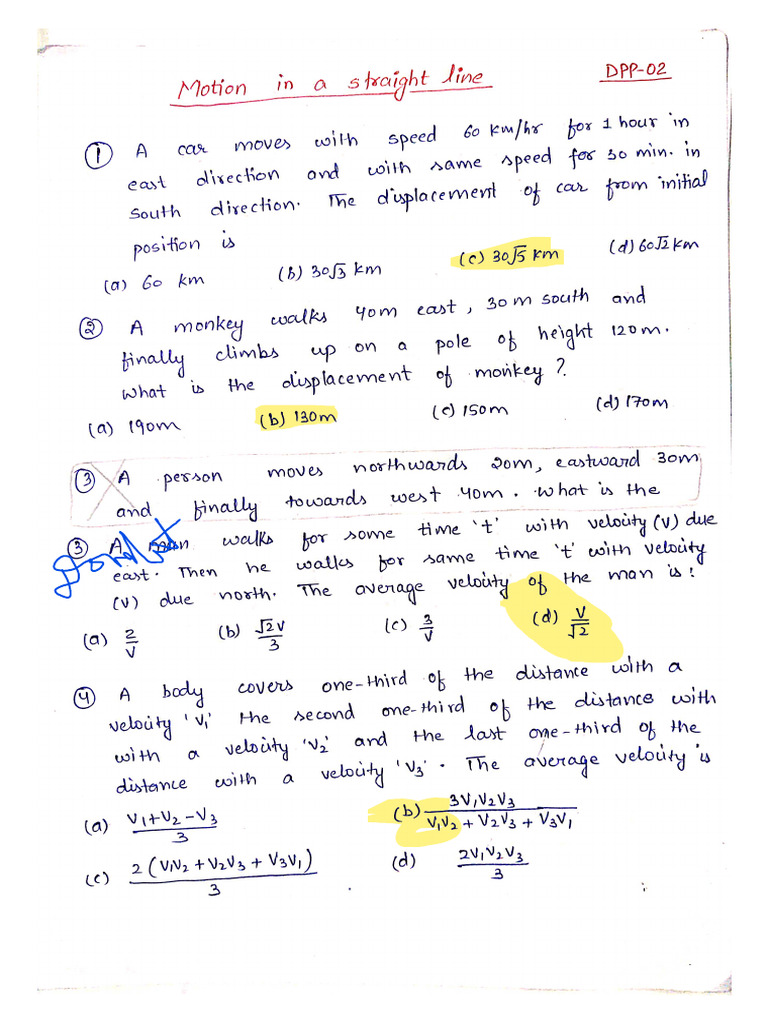 Motion in a straight line
DPP-02
① A car moves with speed 60 km/hr for 1 hour in
east direction and with same speed for 30 min. in
south direction. The displacement of car from initial
position is
(a) 60 km (b) 30√3 km (c) 30√5 km (d) 60√2 km
② A monkey walks 40m east, 30m south and
finally climbs up on a pole of height 120m.
what is the displacement of monkey?
(a) 190m (b) 130m (c) 150m (d) 170m
③ A person moves northwards 20m, eastward 30m
and finally towards west 40m. what is the
③ A man walks for some time 't' with velocity (v) due
east. Then he walks for same time 't' with velocity
(v) due north. The average velocity of the man is:
(a) 2/v (b) √2v/3 (c) 3/v (d) v/√2
Doubt
④ A body covers one-third of the distance with a
velocity 'v₁' the second one-third of the distance with
with a velocity 'v₂' and the last one-third of the
distance with a velocity 'v₃'. The average velocity is
(a) v₁+v₂-v₃/3 (b) 3v₁v₂v₃/v₁v₂+v₂v₃+v₃v₁
(c) 2(v₁v₂+v₂v₃+v₃v₁)/3 (d) 2v₁v₂v₃/3